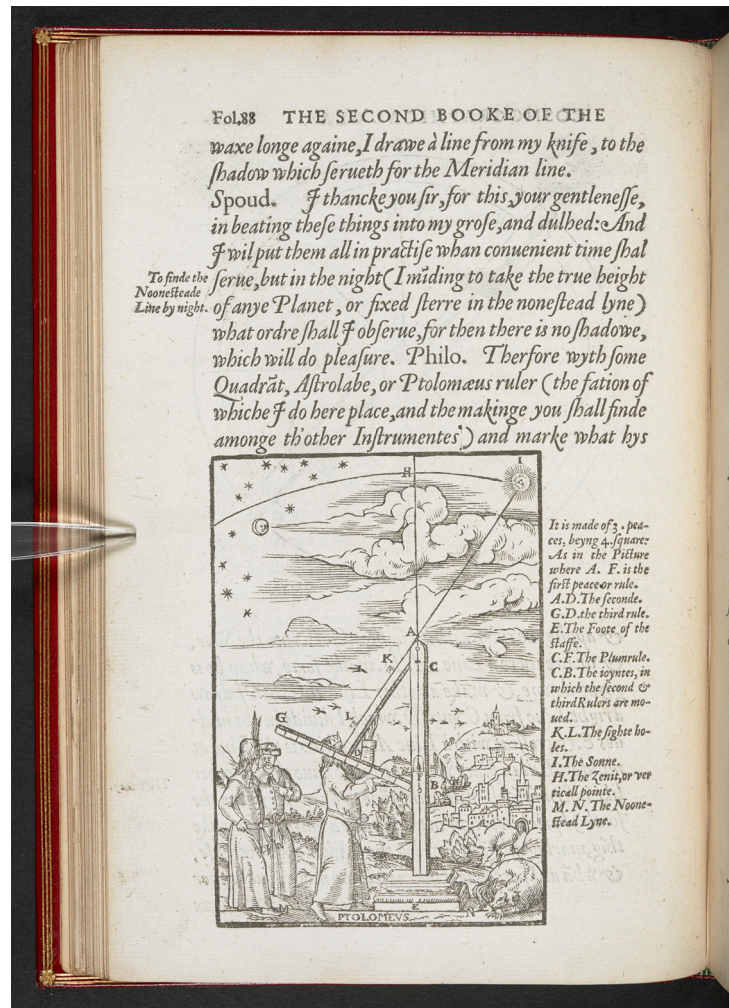 Fol.88 THE SECOND BOOKE OF THE
waxe longe againe, I drawe à line from my knife, to the
ſhadow which ſerueth for the Meridian line.
Spoud. I thancke you ſir, for this, your gentleneſſe,
in beating theſe things into my groſe, and dulhed: And
I wil put them all in practiſe whan conuenient time ſhal
To finde the
Nooneſteade
Line by night.
ſerue, but in the night (I mīding to take the true height
of anye Planet, or fixed ſterre in the noneſtead lyne)
what ordre ſhall I obſerue, for then there is no ſhadowe,
which will do pleaſure. Philo. Therfore wyth ſome
Quadrāt, Aſtrolabe, or Ptolomæus ruler (the faſion of
whiche I do here place, and the makinge you ſhall finde
amonge th'other Inſtrumentes) and marke what hys
H
I
A
K
C
G
L
D
F
B
M
E
N
PTOLOMEVS.
It is made of 3. pea-
ces, beyng 4. ſquare:
As in the Picture
where A. F. is the
firſt peace or rule.
A.D. The ſeconde.
G.D. the third rule.
E. The Foote of the
ſtaffe.
C.F. The Plumrule.
C.B. The ioyntes, in
which the ſecond &
third Rulers are mo-
ued.
K.L. The ſighte ho-
les.
I. The Sonne.
H. The Zenit, or ver
ticall pointe.
M. N. The Noone-
ſtead Lyne.